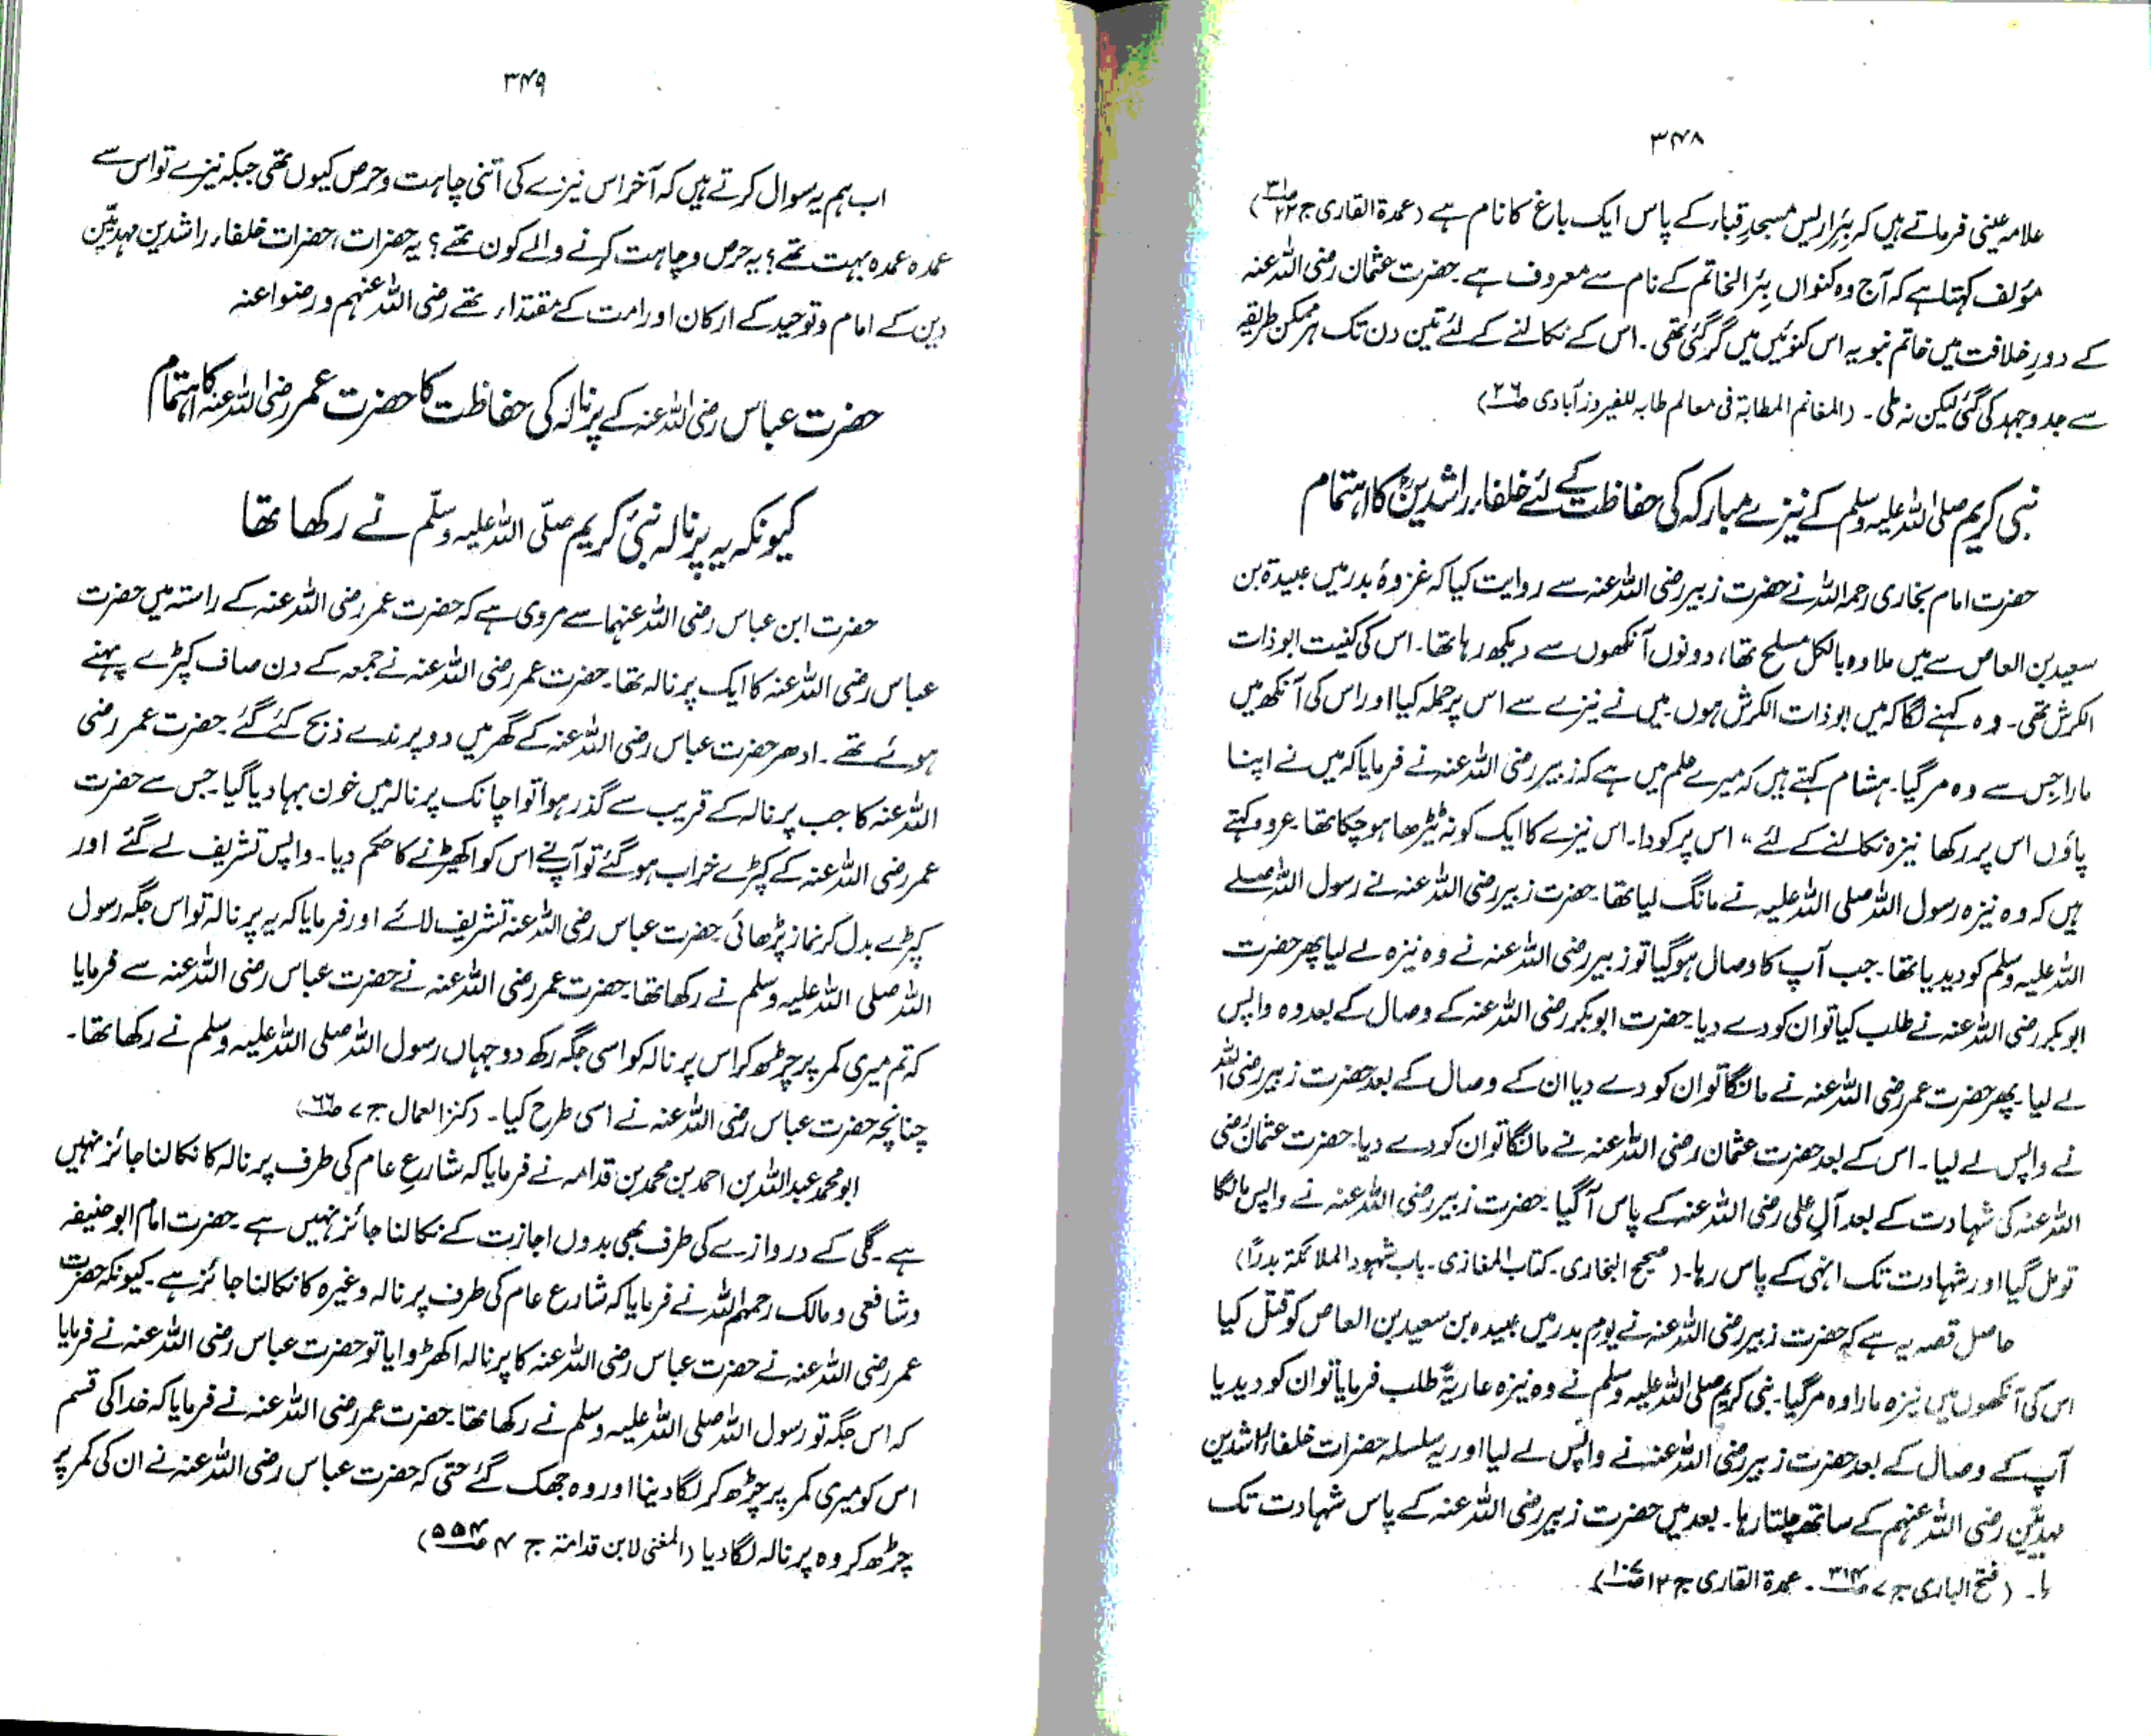 ۳۴۸
علامہ عینی فرماتے ہیں کہ بئر اریس مسجدِ قباء کے پاس ایک باغ کا نام ہے (عمدۃ القاری ج۲۲ ص۳۱)
مؤلف کہتا ہے کہ آج وہ کنواں بئر الخاتم کے نام سے معروف ہے۔ حضرت عثمان رضی اللہ عنہ
کے دورِ خلافت میں خاتم نبویہ اس کنوئیں میں گر گئی تھی۔ اس کے نکالنے کے لئے تین دن تک ہر ممکن طریقہ
سے جدوجہد کی گئی لیکن نہ ملی۔ (المغانم المطابة فی معالم طابہ للفیروزآبادی ص۲۶)
نبی کریم صلی اللہ علیہ وسلم کے نیزے مبارکہ کی حفاظت کے لئے خلفاء راشدینؓ کا اہتمام
حضرت امام بخاری رحمہ اللہ نے حضرت زبیر رضی اللہ عنہ سے روایت کیا کہ غزوۂ بدر میں عبیدۃ بن
سعید بن العاص سے میں ملا وہ بالکل مسلح تھا، دونوں آنکھوں سے دیکھ رہا تھا۔ اس کی کنیت ابوذات
الکرش تھی۔ وہ کہنے لگا کہ میں ابوذات الکرش ہوں۔ میں نے نیزے سے اس پر حملہ کیا اور اس کی آنکھ میں
مارا جس سے وہ مر گیا۔ ہشام کہتے ہیں کہ میرے علم میں ہے کہ زبیر رضی اللہ عنہ نے فرمایا کہ میں نے اپنا
پاؤں اس پر رکھا نیزہ نکالنے کے لئے، اس پر کودا۔ اس نیزے کا ایک کونہ ٹیڑھا ہو چکا تھا۔ عروہ کہتے
ہیں کہ وہ نیزہ رسول اللہ صلی اللہ علیہ نے مانگ لیا تھا۔ حضرت زبیر رضی اللہ عنہ نے رسول اللہ صلے
اللہ علیہ وسلم کو دیدیا تھا۔ جب آپ کا وصال ہو گیا تو زبیر رضی اللہ عنہ نے وہ نیزہ لے لیا پھر حضرت
ابوبکر رضی اللہ عنہ نے طلب کیا تو ان کو دے دیا۔ حضرت ابوبکر رضی اللہ عنہ کے وصال کے بعد وہ واپس
لے لیا۔ پھر حضرت عمر رضی اللہ عنہ نے مانگا تو ان کو دے دیا ان کے وصال کے بعد حضرت زبیر رضی اللہ
نے واپس لے لیا۔ اس کے بعد حضرت عثمان رضی اللہ عنہ نے مانگا تو ان کو دے دیا۔ حضرت عثمان رضی
اللہ عنہ کی شہادت کے بعد آلِ علی رضی اللہ عنہ کے پاس آ گیا۔ حضرت زبیر رضی اللہ عنہ نے واپس مانگا
تو مل گیا اور شہادت تک انہی کے پاس رہا۔ (صحیح البخاری۔ کتاب المغازی۔ باب شہود الملائکۃ بدرًا)
حاصل قصہ یہ ہے کہ حضرت زبیر رضی اللہ عنہ نے یومِ بدر میں عبیدہ بن سعید بن العاص کو قتل کیا
اس کی آنکھوں میں نیزہ مارا وہ مر گیا۔ نبی کریم صلی اللہ علیہ وسلم نے وہ نیزہ عاریۃً طلب فرمایا تو ان کو دیدیا
آپ کے وصال کے بعد حضرت زبیر رضی اللہ عنہ نے واپس لے لیا اور یہ سلسلہ حضرات خلفاء راشدین
مہدیّین رضی اللہ عنہم کے ساتھ چلتا رہا۔ بعد میں حضرت زبیر رضی اللہ عنہ کے پاس شہادت تک
رہا۔ (فتح الباری ج۷ ص۳۱۴۔ عمدۃ القاری ج۱۷ ص۱۰۷)
۳۴۹
اب ہم یہ سوال کرتے ہیں کہ آخر اس نیزے کی اتنی چاہت و حرص کیوں تھی جبکہ نیزے تو اس سے
عمدہ عمدہ بہت تھے؟ یہ حرص و چاہت کرنے والے کون تھے؟ یہ حضرات، حضرات خلفاء راشدین مہدیّین
دین کے امام و توحید کے ارکان اور امت کے مقتداء تھے رضی اللہ عنہم و رضوا عنہ
حضرت عباس رضی اللہ عنہ کے پرنالہ کی حفاظت کا حضرت عمر رضی اللہ عنہ کا اہتمام
کیونکہ یہ پرنالہ نبئ کریم صلّی اللہ علیہ وسلّم نے رکھا تھا
حضرت ابن عباس رضی اللہ عنہما سے مروی ہے کہ حضرت عمر رضی اللہ عنہ کے راستہ میں حضرت
عباس رضی اللہ عنہ کا ایک پرنالہ تھا۔ حضرت عمر رضی اللہ عنہ نے جمعہ کے دن صاف کپڑے پہنے
ہوئے تھے۔ ادھر حضرت عباس رضی اللہ عنہ کے گھر میں دو پرندے ذبح کئے گئے۔ حضرت عمر رضی
اللہ عنہ کا جب پرنالہ کے قریب سے گذر ہوا تو اچانک پرنالہ میں خون بہا دیا گیا۔ جس سے حضرت
عمر رضی اللہ عنہ کے کپڑے خراب ہو گئے تو آپ نے اس کو اکھیڑنے کا حکم دیا۔ واپس تشریف لے گئے اور
کپڑے بدل کر نماز پڑھائی۔ حضرت عباس رضی اللہ عنہ تشریف لائے اور فرمایا کہ یہ پرنالہ تو اس جگہ رسول
اللہ صلی اللہ علیہ وسلم نے رکھا تھا۔ حضرت عمر رضی اللہ عنہ نے حضرت عباس رضی اللہ عنہ سے فرمایا
کہ تم میری کمر پر چڑھ کر اس پرنالہ کو اسی جگہ رکھ دو جہاں رسول اللہ صلی اللہ علیہ وسلم نے رکھا تھا۔
چنانچہ حضرت عباس رضی اللہ عنہ نے اسی طرح کیا۔ (کنز العمال ج۷ ص۶۶)
ابو محمد عبداللہ بن احمد بن محمد بن قدامہ نے فرمایا کہ شارعِ عام کی طرف پرنالہ کا نکالنا جائز نہیں
ہے۔ گلی کے دروازے کی طرف بھی بدوں اجازت کے نکالنا جائز نہیں ہے۔ حضرت امام ابو حنیفہ
و شافعی و مالک رحمہم اللہ نے فرمایا کہ شارع عام کی طرف پرنالہ وغیرہ کا نکالنا جائز ہے۔ کیونکہ حضرت
عمر رضی اللہ عنہ نے حضرت عباس رضی اللہ عنہ کا پرنالہ اکھڑوایا تو حضرت عباس رضی اللہ عنہ نے فرمایا
کہ اس جگہ تو رسول اللہ صلی اللہ علیہ وسلم نے رکھا تھا۔ حضرت عمر رضی اللہ عنہ نے فرمایا کہ خدا کی قسم
اس کو میری کمر پر چڑھ کر لگا دینا اور وہ جھک گئے حتی کہ حضرت عباس رضی اللہ عنہ نے ان کی کمر پر
چڑھ کر وہ پرنالہ لگا دیا (المغنی لابن قدامۃ ج ۴ ص۵۵۴)